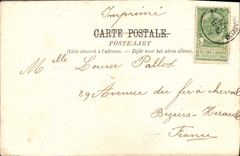 Imprimé
CARTE POSTALE.
POSTKAART
(Côté réservé à l'adresse. — Zijde voor het adres alleen.)
Melle Louise Pallot
29 Avenue du fer à cheval
Béziers - Hérault
France